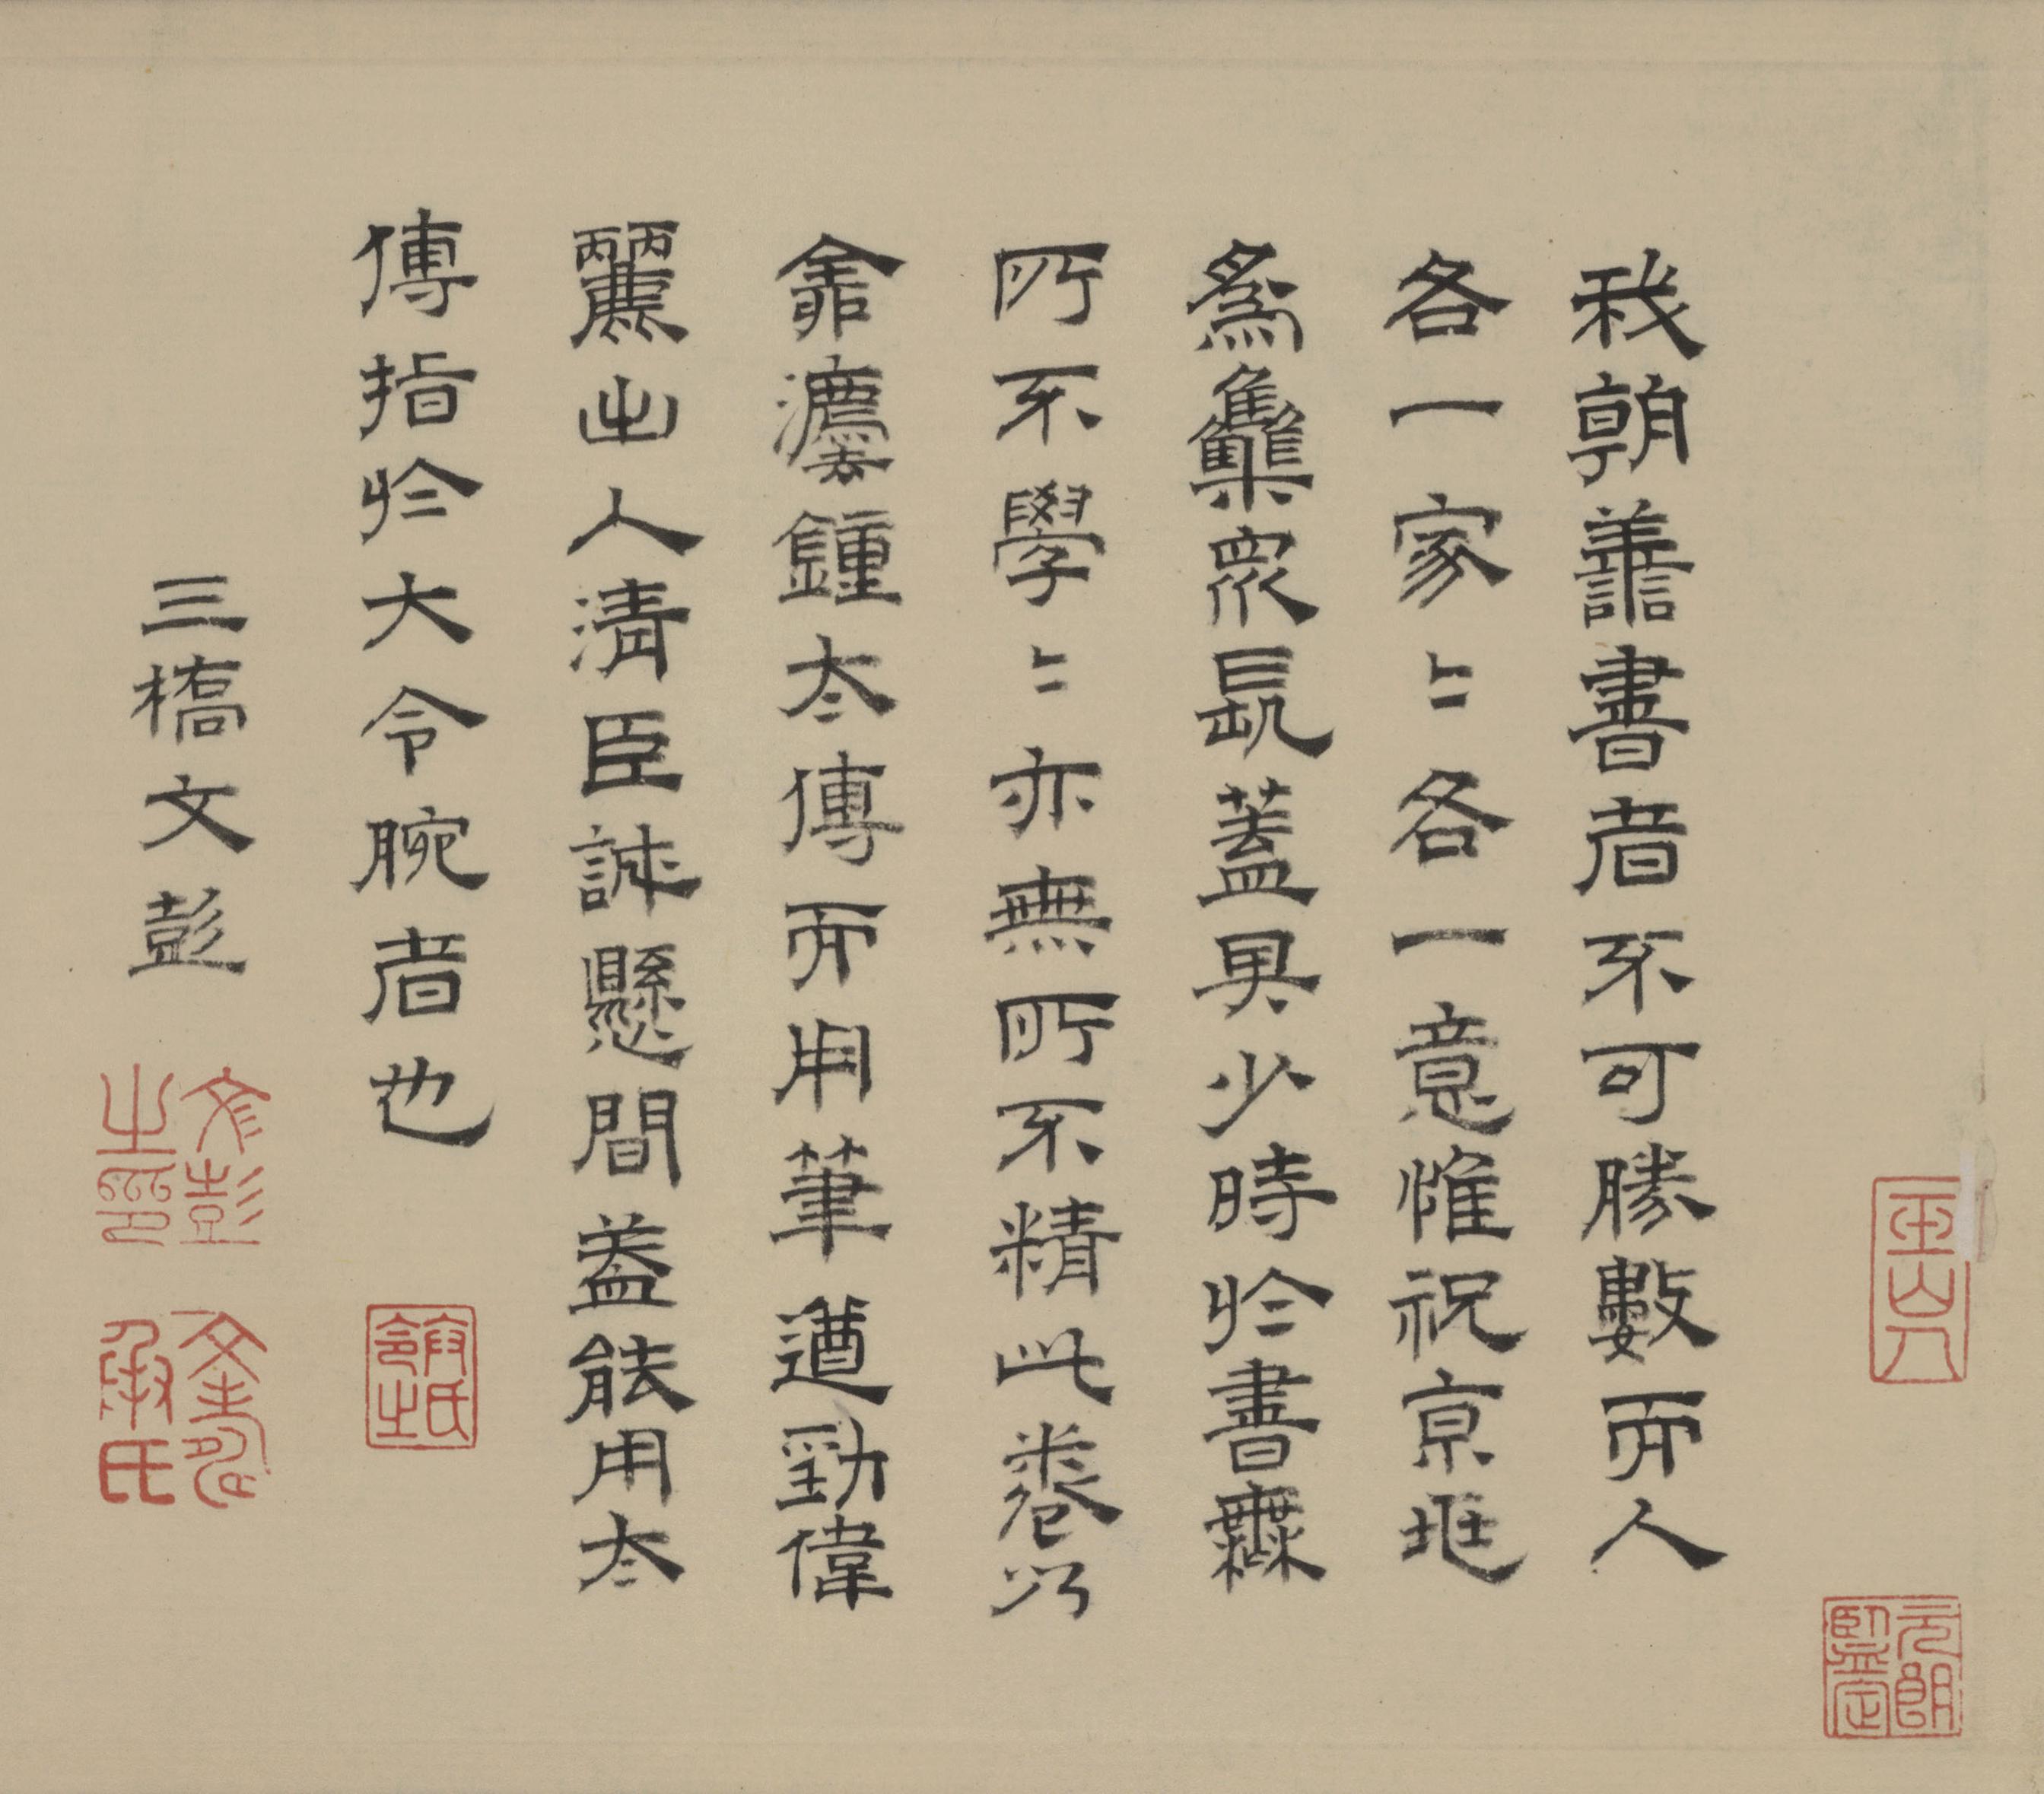 我朝善書者不可勝數而人
各一家〻各一意惟祝京兆
為集眾長蓋其少時於書無
所不學〻亦無所不精此卷乃
倉濃鍾太傅而用筆遒勁偉
麗出人清臣誠懸間蓋能用太
傅指於大令腕者也
三橋文彭
文彭之印
文壽承氏
玉山人
元朗鑒定